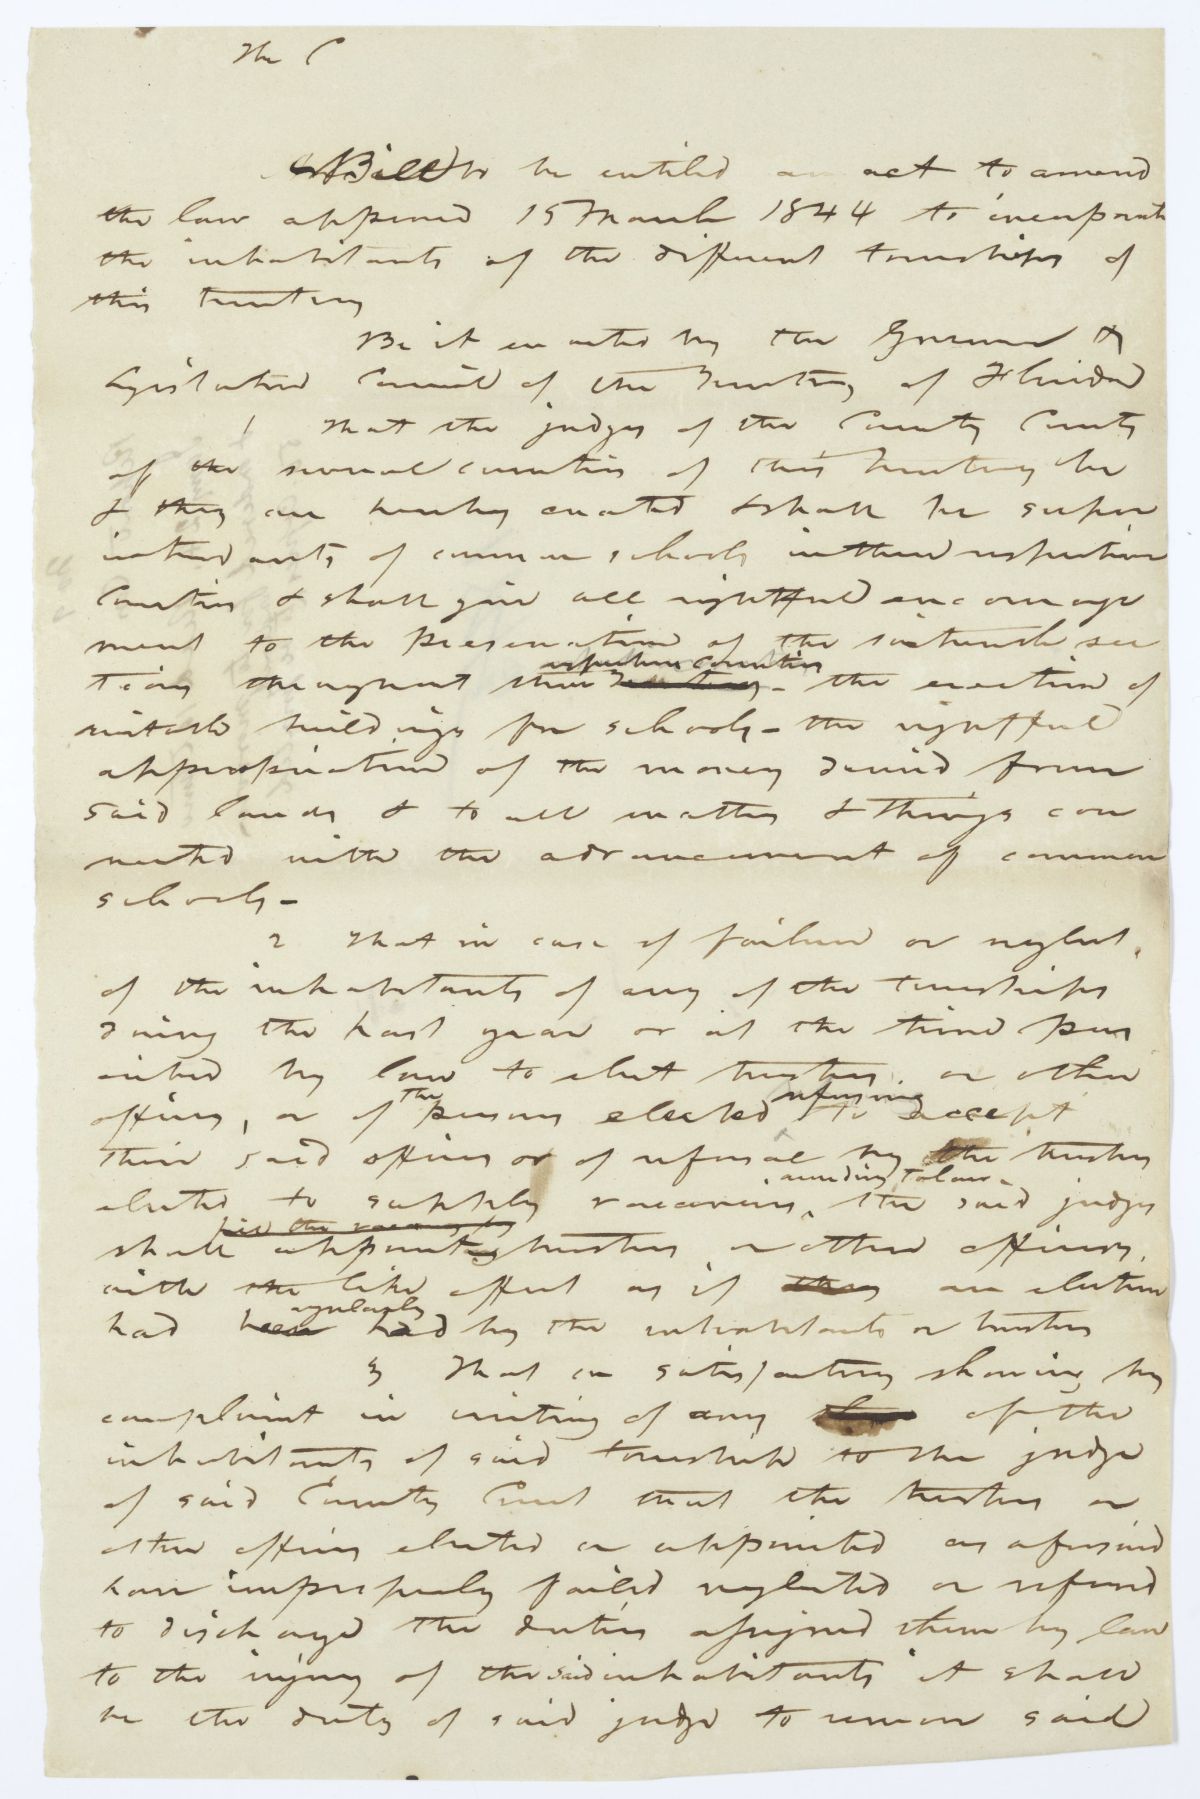 The C
A Bill to be entitled an act to amend
the law approved 15 March 1844 to incorporate
the inhabitants of the different townships of
this territory
Be it enacted by the Governor &
Legislative Council of the Territory of Florida
1 That the judges of the County Courts
of the several counties of this Territory be
& they are hereby created & shall be super
intendants of common schools in their respective
Counties & shall give all rightful encourage
ment to the preservation of the sixteenth sec
tions throughout their respective counties - the erection of
suitable buildings for schools - the rightful
appropriation of the money derived from
said lands & to all matters & things con
nected with the advancement of common
schools -
2 That in case of failure or neglect
of the inhabitants of any of the townships
during the last year or at the time pres
cribed by law to elect trustees or other
officers, or of the persons elected refusing to accept
their said offices or of refusal by the trustees
elected to supply vacancies according to law, the said judges
shall appoint trustees or other officers,
with the like effect as if an election
had been regularly had by the inhabitants or trustees
3 That on satisfactory showing by
complaint in writing of any of the
inhabitants of said township to the judge
of said County Court that the trustees or
other officers elected or appointed as aforesaid
have improperly failed neglected or refused
to discharge the duties assigned them by law
to the injury of the said inhabitants it shall
be the duty of said judge to remove said